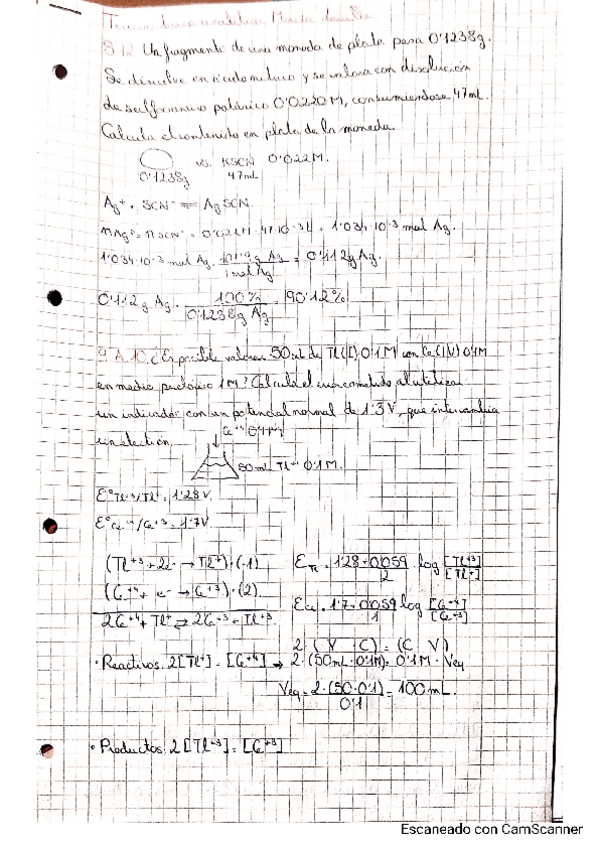 8.12 Un fragmento de una moneda de plata pesa 0'1238g.
Se disuelve en ácido nítrico y se valora con disolución
de sulfocianuro potásico 0'0220 M, consumiendose 47mL.
Calcula el contenido en plata de la moneda.
vs. KSCN 0'022M.
0'1238g 47mL
Ag⁺ + SCN⁻ ⇌ AgSCN.
nAg⁺ = nSCN⁻ = 0'022M · 47·10⁻³L = 1'034·10⁻³ mol Ag.
1'034·10⁻³ mol Ag · 107'9g Ag / 1 mol Ag = 0'112g Ag.
0'112 g Ag · 100% / 0'1238g Ag = 90'12%
4.A.10 ¿Es posible valorar 50mL de Tl(I) 0'1M con Ce(IV) 0'1M
en medio perclórico 1M? Calcula el error cometido al utilizar
un indicador con un potencial normal de 1'3V, que intercambia
un electrón.
50mL Tl⁺ 0'1M.
E° Tl⁺³/Tl⁺ = 1'28V.
E° Ce⁺⁴/Ce⁺³ = 1'7V
(Tl⁺³ + 2e⁻ → Tl⁺)·(-1) E Tl = 1'28 + 0'059/2 log [Tl⁺³]/[Tl⁺]
(Ce⁺⁴ + e⁻ → Ce⁺³)·(2)
2Ce⁺⁴ + Tl⁺ ⇌ 2Ce⁺³ + Tl⁺³ E Ce = 1'7 + 0'059/1 log [Ce⁺⁴]/[Ce⁺³]
2 (V C) = (C V)
· Reactivos: 2[Tl⁺] = [Ce⁺⁴] → 2·(50mL·0'1M) = 0'1M · Veq
Veq = 2·(50·0'1)/0'1 = 100mL.
· Productos: 2[Tl⁺³] = [Ce⁺³]
Escaneado con CamScanner